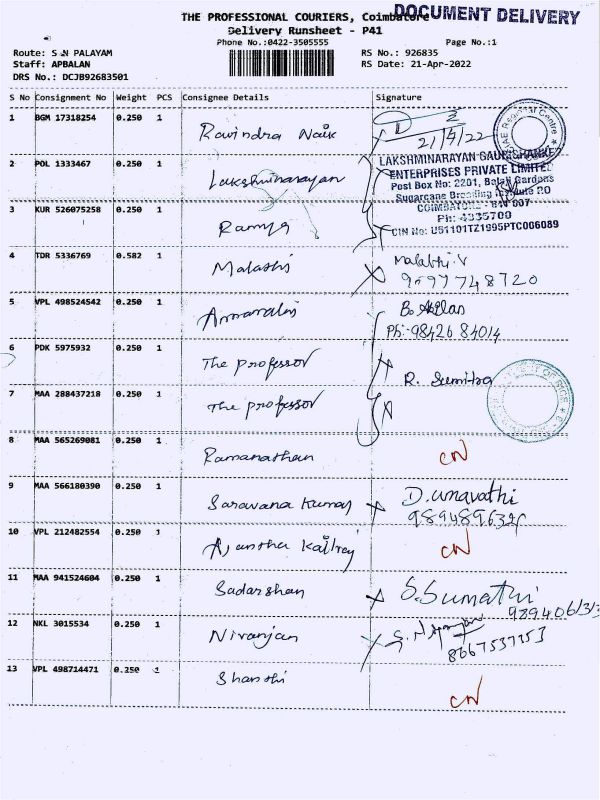 THE PROFESSIONAL COURIERS, Coimbatore
DOCUMENT DELIVERY
Delivery Runsheet - P41
Phone No.:0422-3505555
Page No.:1
Route: S N PALAYAM
RS No.: 926835
Staff: APBALAN
RS Date: 21-Apr-2022
DRS No.: DCJB92683501
S No Consignment No Weight PCS Consignee Details Signature
1 BGM 17318254 0.250 1 Ravindra Naik
21/4/22
Regional Centre
2 POL 1333467 0.250 1 Lakshminarayan
LAKSHMINARAYAN
ENTERPRISES PRIVATE LIMITED
Post Box No: 2201, Balaji Gardens
Sugarcane Breeding Institute PO
COIMBATORE - 641 007
Ph: 4335700
CIN No: U51101TZ1995PTC006089
3 KUR 526075258 0.250 1 Ramya
4 TDR 5336769 0.582 1 Malathi Malathi. V
9597748720
5 VPL 498524542 0.250 1
Ph:-98426 84014
6 PDK 5975932 0.250 1 The professor
R. Sumitra
7 MAA 288437218 0.250 1 The professor
8 MAA 565269081 0.250 1 Ramanathan CN
9 MAA 566180390 0.250 1 Saravana Kumar D.umavathi
10 VPL 212482554 0.250 1 CN
11 MAA 941524604 0.250 1 Sadarshan S.Sumathi
12 NKL 3015534 0.250 1 Niranjan
8667537253
13 VPL 498714471 0.250 1 Shanthi CN